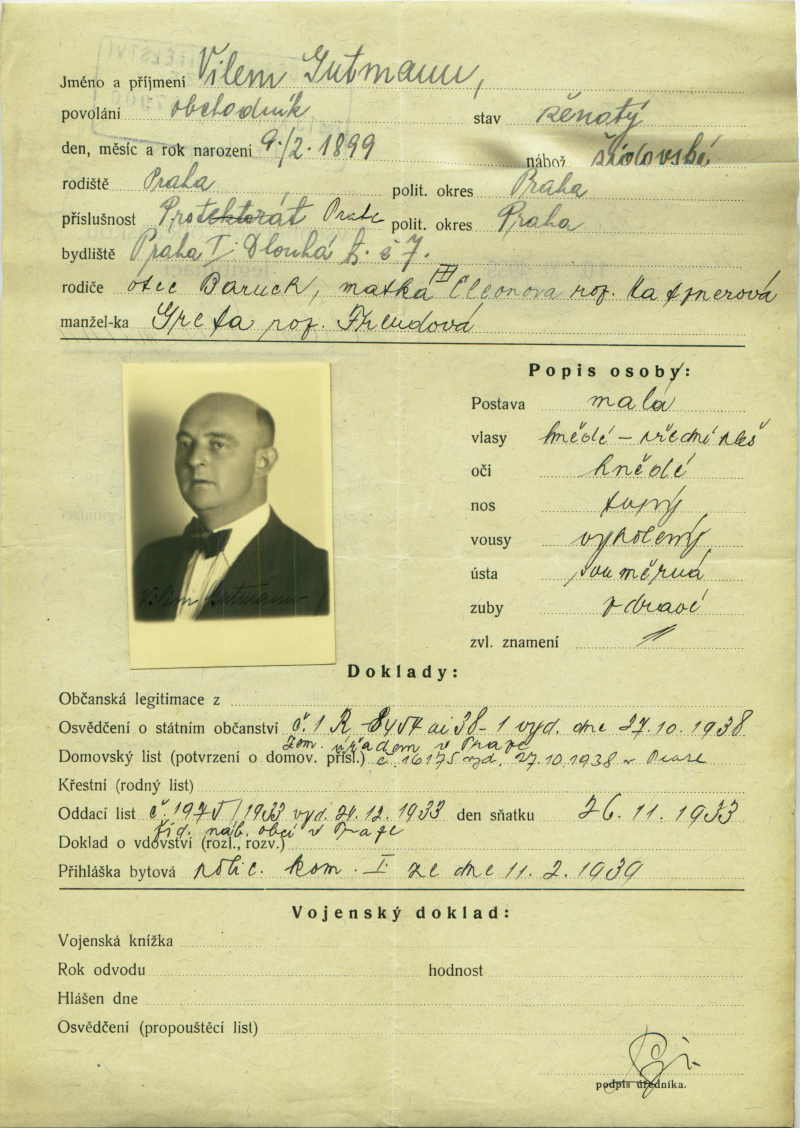 Jméno a příjmení Vilem Gutmann,
povolání obchodník stav ženatý
den, měsíc a rok narození 9./2. 1899 nábož židovské
rodiště Praha polit. okres Praha
příslušnost Protektorát Praha polit. okres Praha
bydliště Praha I. Dlouhá tř. č 7.
rodiče otec Baruch, matka Eleonova roz.
manžel-ka Greta roz. Freudová
Popis osoby:
Postava malá
vlasy hnědé – střední pleš
oči hnědé
nos tupý
vousy vyholený
ústa souměrná
zuby zdravé
zvl. znamení
Vilem Gutmann
Doklady:
Občanská legitimace z
Osvědčení o státním občanství č. 1 R ai 38-1 vyd. dne 27.10.1938
zem. úřadem v Praze
Domovský list (potvrzení o domov. přísl.) č 16175 vyd. 27.10.1938 v Praze
Křestní (rodný list)
Oddací list č. 1975/1933 vyd. 21.12.1933 den sňatku 26.11.1933
žid. náb. obcí v Praze
Doklad o vdovství (rozl., rozv.)
Přihláška bytová polic. kom. I ze dne 11.2.1939
Vojenský doklad:
Vojenská knížka
Rok odvodu hodnost
Hlášen dne
Osvědčení (propouštěcí list)
podpis úředníka.